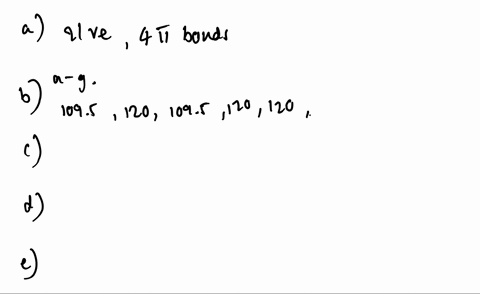 a) 21 ve, 4 π bonds
b) a-g.
109.5, 120, 109.5, 120, 120,
c)
d)
e)